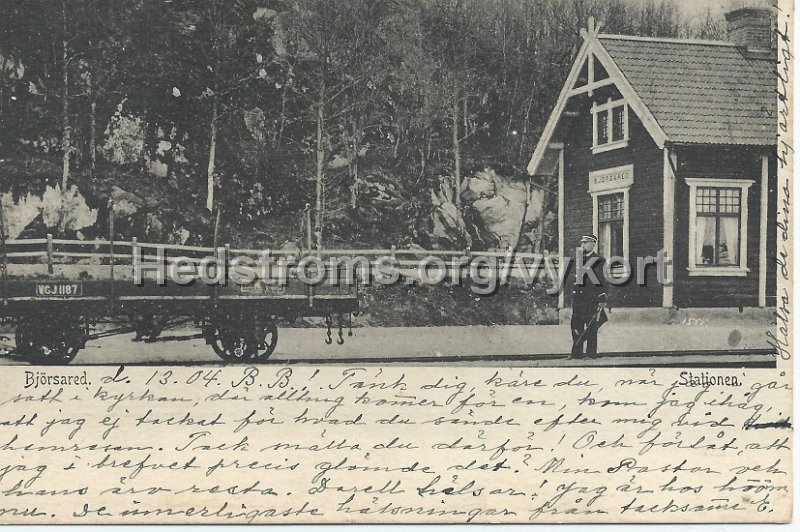 BJÖRSARED
VGJ 1187
Hedstroms.org/vykort
Hälsa de dina hjärtligt!
Björsared. d. 13.04. B.B! Tänk dig, käre du, när jag går Stationen.
satt i kyrkan, där allting kommer för en, kom jag ihåg,
att jag ej tackat för hvad du sände efter mig vid
hemresan. Tack måtta du därför! Och förlåt, att
jag i brefvet precis glömde det. Min Pastor och
hans äro resta. Darell hälsar! Jag är hos
nu. De innerligaste hälsningar från tacksamme E.